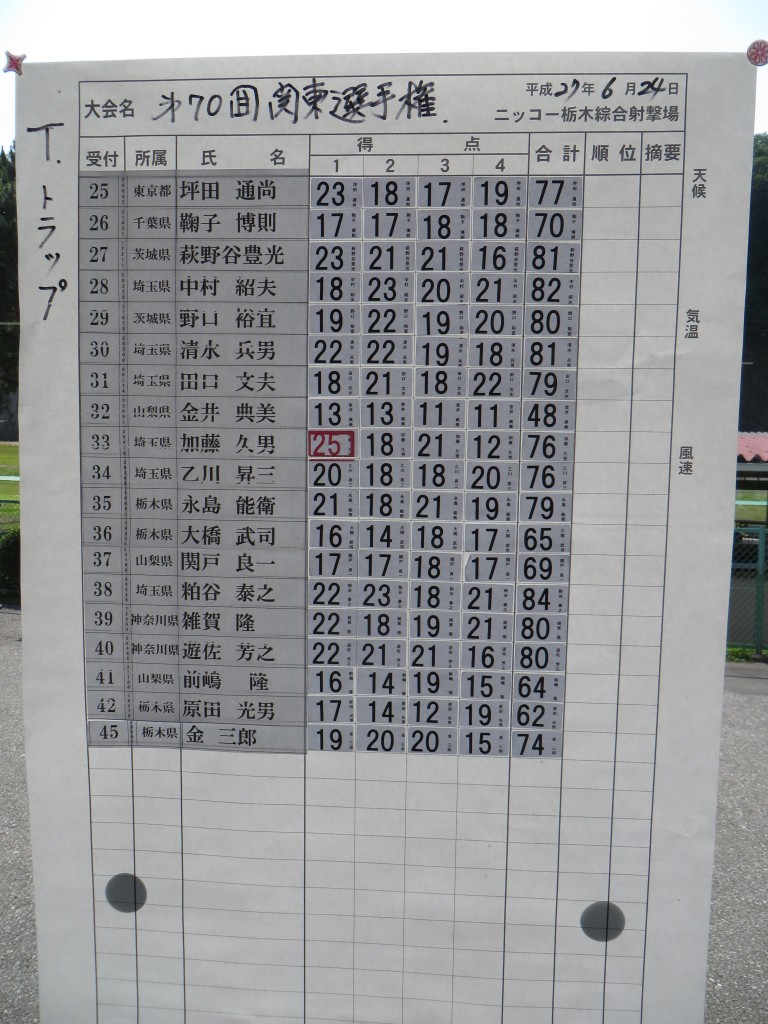 大会名 第70回関東選手権.
平成27年6月24日
ニッコー栃木綜合射撃場
T.トラップ
受付 所属 氏名 得点 合計 順位 摘要
1 2 3 4
25 東京都 坪田 通尚 23 18 17 19 77
26 千葉県 鞠子 博則 17 17 18 18 70
27 茨城県 萩野谷豊光 23 21 21 16 81
28 埼玉県 中村 紹夫 18 23 20 21 82
29 茨城県 野口 裕宜 19 22 19 20 80
30 埼玉県 清水 兵男 22 22 19 18 81
31 埼玉県 田口 文夫 18 21 18 22 79
32 山梨県 金井 典美 13 13 11 11 48
33 埼玉県 加藤 久男 25 18 21 12 76
34 埼玉県 乙川 昇三 20 18 18 20 76
35 栃木県 永島 能衛 21 18 21 19 79
36 栃木県 大橋 武司 16 14 18 17 65
37 山梨県 関戸 良一 17 17 18 17 69
38 埼玉県 粕谷 泰之 22 23 18 21 84
39 神奈川県 雑賀 隆 22 18 19 21 80
40 神奈川県 遊佐 芳之 22 21 21 16 80
41 山梨県 前嶋 隆 16 14 19 15 64
42 栃木県 原田 光男 17 14 12 19 62
45 栃木県 金 三郎 19 20 20 15 74
天候
気温
風速